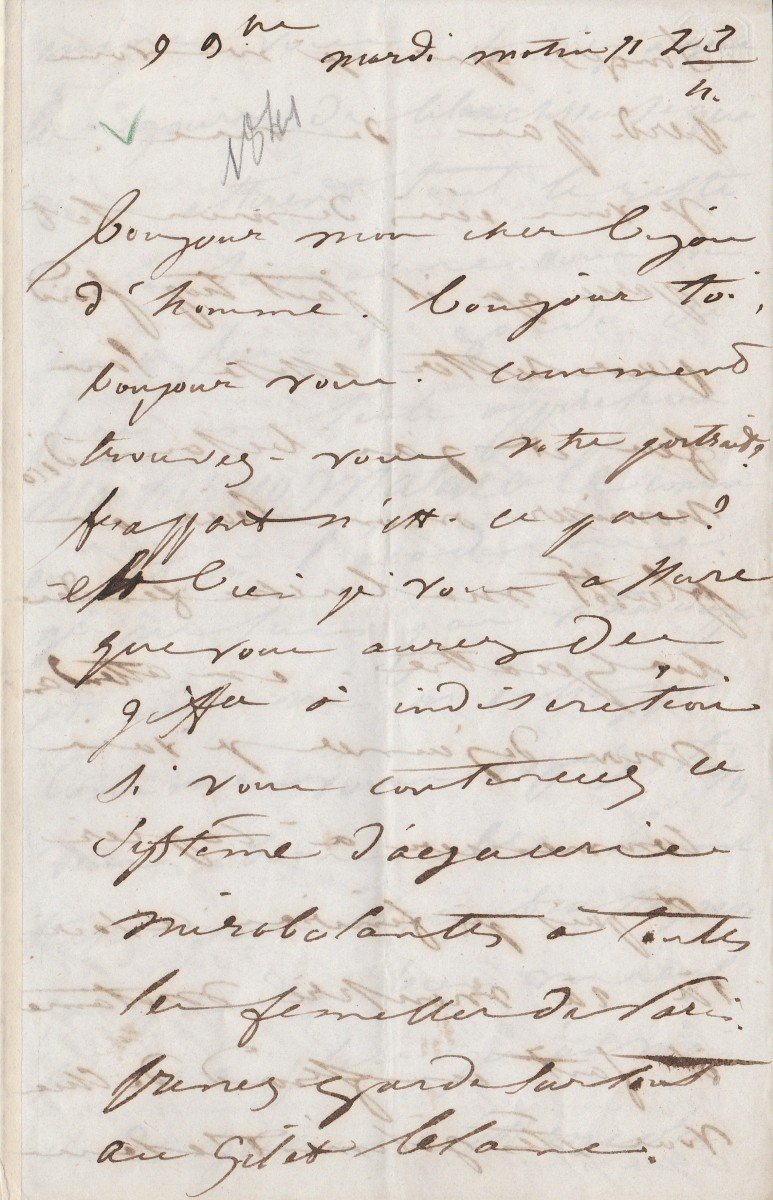 9 9bre mardi matin 11 h. 3/4
1841
Bonjour mon cher bijou
d'homme. Bonjour toi,
bonjour vous. Comment
trouvez-vous votre portrait ?
frappant n'est-ce pas ?
eh bien je vous assure
que vous aurez des
giffles à indiscrétion
si vous continuez ce
système d'agacerie
mirobolantes à toutes
les femelles de Paris.
Prenez garde surtout
au gilet blanc.